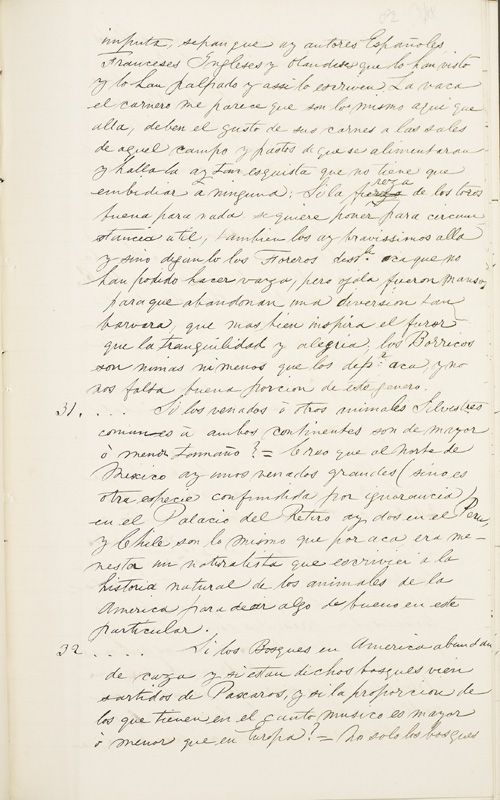 imputa, sepan que ay autores Españoles
Franceses Ingleses y Olandeses que lo han visto
y lo han palpado y assi lo escriven La vaca
el carnero me parece que son lo mismo aqui que
alla, deben el gusto de sus carnes a las sales
de aquel campo y pastos de que se alimentaran
y halla la ay tan esquista que no tiene que
embidiar a ninguna: Si la fiereza de los toros
buena para nada se quiere poner para circun
stancia util, tambien los ay bravissimos alla
y sino diganlo los Toreros de aca que no
han podido hacer varza, pero ojala fueron mansos
para que abandonan una diversion tan
barvara, que mas bien inspira el furor
que la tranquilidad y alegria, los Borricos
son ni mas ni menos que los de aca y no
nos falta buena porcion de este genero.
31. .... Si los venados ò otros animales Silvestres
comunes à ambos continentes son de mayor
ò menor tamaño? = Creo que al Norte de
Mexico ay unos venados grandes (sino es
otra especie confundida por ignorancia)
en el Palacio del Retiro ay dos en el Peru,
y Chile son lo mismo que por aca era me-
nester un naturatista que escrivier à la
historia natural de los animales de la
America para decir algo de bueno en este
particular.
32 ..... Si los Bosques en America abundan
de caza y si estan dichos bosques vien
sartidos de Paxaros, y si la proporcion de
los que tienen en el canto musico es mayor
ò menor que en Europa? = No solo los bosques